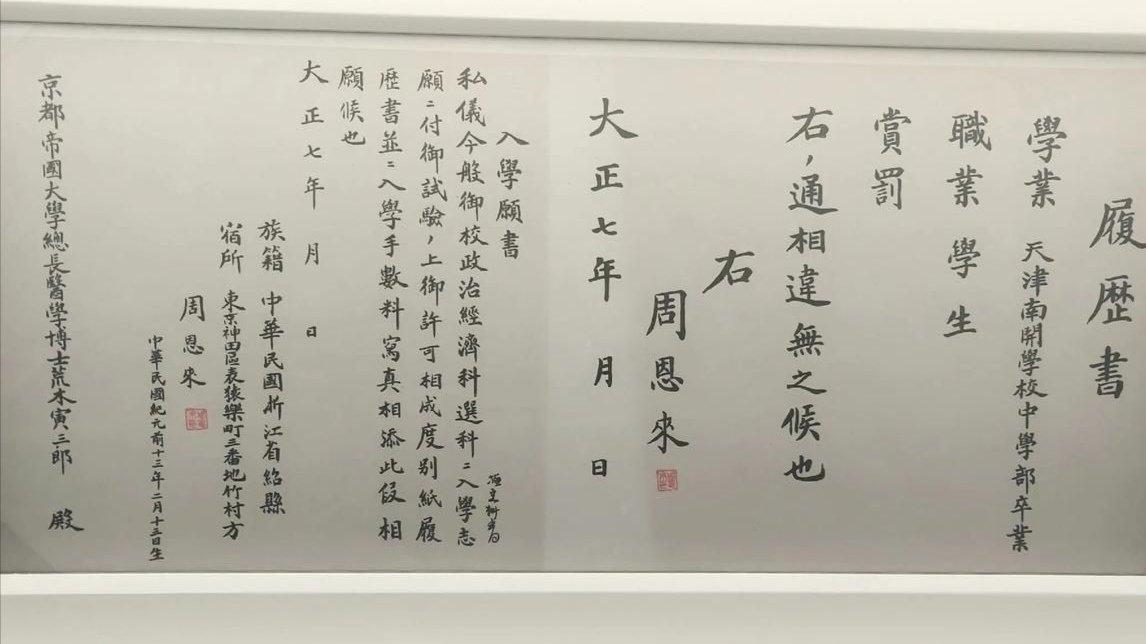 履歴書
學業 天津南開學校中學部卒業
職業 學生
賞罰
右,通相違無之候也
右
周恩來
大正七年 月 日
入學願書
私儀今般御校政治經濟科選科ニ入學志
願ニ付御試驗,上御許可相成度別紙履
歴書並ニ入學手數料寫真相添此段相
願候也
大正七年 月 日
族籍 中華民國浙江省紹縣
宿所 東京神田區表猿樂町三番地竹村方
周恩來
中華民國紀元前十三年二月十三日生
京都帝國大學總長醫學博士荒木寅三郎 殿